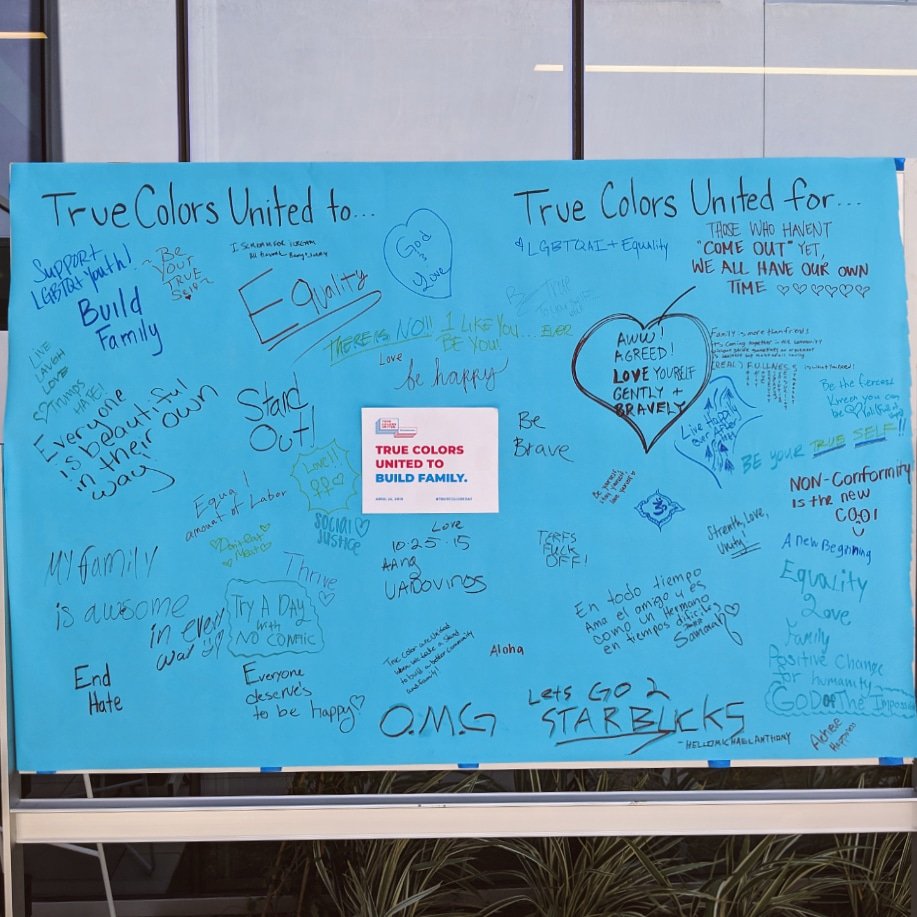 True Colors United to...
True Colors United for...
Support
LGBTQI Youth!
Build
Family
~ Be
Your
TRUE
Self ~
I SCREAM FOR ICECREAM
Equality
God
is
Love
LGBTQAI + Equality
THOSE WHO HAVEN'T
"COME OUT" YET,
WE ALL HAVE OUR OWN
TIME ♡♡♡♡♡♡
THERE IS NO!!
I LIKE YOU
BE YOU!... EVER
Love
be happy
AWW!
AGREED!
LOVE YOURSELF
GENTLY +
BRAVELY
Family is more than friends
It's coming together in the community
LIVE
LAUGH
LOVE
♡ Trumps
HATE!
Everyone
is beautiful
in their own
way
Stand
Out!
Love!!
TRUE COLORS UNITED
TRUE COLORS
UNITED TO
BUILD FAMILY.
#TRUECOLORSDAY
Be
Brave
Live Happily
Ever After
Be the fiercest
Kween you can
be
BE YOUR TRUE SELF!!
Equal
amount of Labor
Don't Eat
Meat ♡
Social
Justice
Be yourself
love yourself
ॐ
NON-Conformity
is the new
COOl
Strenth, Love,
Unity!
A new Beginning
My family
is awsome
in every
way
Thrive
TRY A DAY
WITH
NO CONFLIC
Love
10·25·15
AAng
UAROVINOS
TERFS
FUCK
OFF!
En todo tiempo
Ama el amigo y es
como un hermano
en tiempos dificiles
Samarah
Equality
Love
Family
Positive Change
for humanity
GOD of The Impossible
End
Hate
Everyone
deserve's
to be happy ♡
True Colors are United
when we take a stand
to build a better community
and family!
Aloha
O.M.G
Lets GO 2
STARBUCKS
- HELLOMICHAELANTHONY
Achieve
Happiness